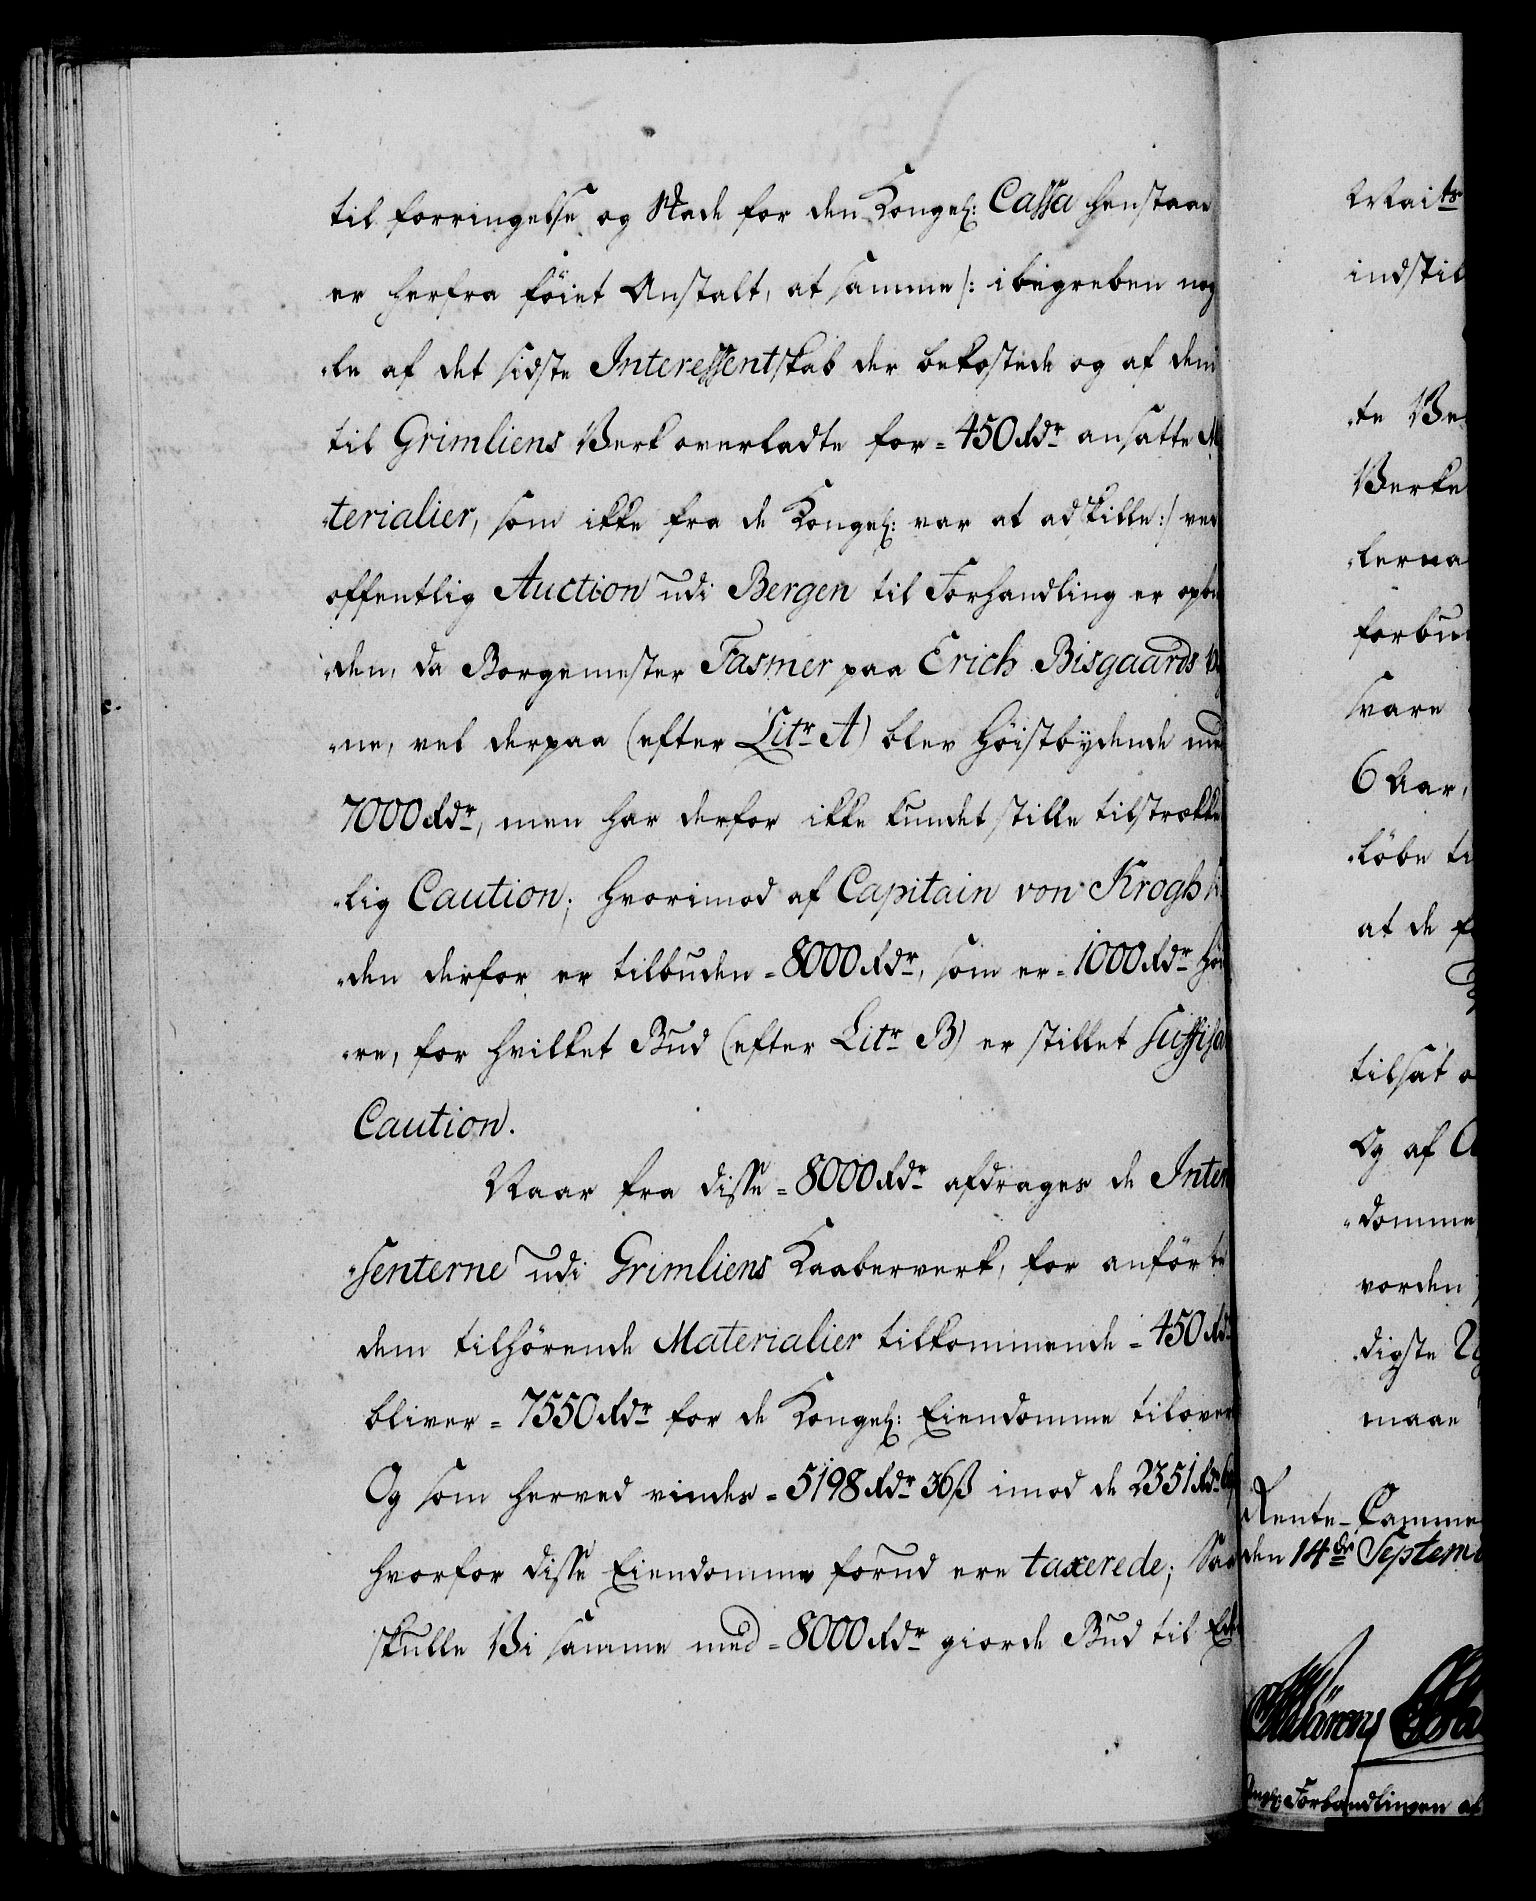 til forringelse og Skade for den Kongel: Cassa henstaae
er herfra föiet Anstalt, at samme /: ibegreben nog
-le af det sidste Interessentskab der bekostede og af dem
til Grimliens Verk overladte for = 450 Rdr ansatte M
terialier, som ikke fra de Kongel: var at adskille :/ ved
offentlig Auction udi Bergen til Forhandling er opbu
-den, da Borgemester Fasmer paa Erich Bisgaards
-ne, vel derpaa (efter Litr A) blev höistbydende me
7000 Rdr, men har derfor ikke kundet stille tilstrække
-lig Caution; hvorimod af Capitain von Krogh si
-den derfor er tilbuden = 8000 Rdr, som er = 1000 Rdr höi
-re, for hvilket Bud (efter Litr B) er stillet suffisa
Caution.
Naar fra disse = 8000 Rdr afdrages de Inter
-senterne udi Grimliens Kaaberverk, for anförte
dem tilhörende Materialier tilkommende = 450 Rd
bliver = 7550 Rdr for de Kongel: Eiendomme tilover
Og som herved vindes = 5198 Rdr 36 ß imod de 2351 Rdr
hvorfor disse Eiendomme forud ere taxerede; Saa
skulle Vi samme med = 8000 Rdr giorde Bud til
Maits
indstil
-te Ve
Verke
-lerna
forbu
svare
6 Aar,
-löbe ti
at de f
tilsat o
Og af
-domme
vorden
-digste
maae
Rente-Camme
den 14de Septemb
Forhandlingen af